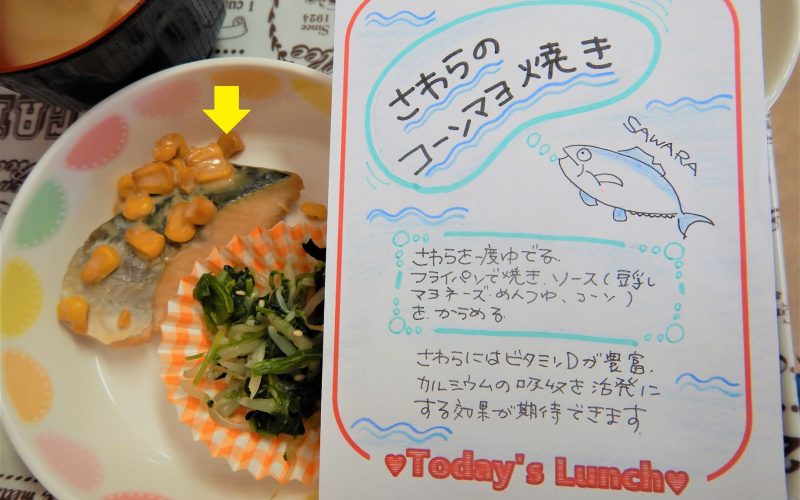 さわらの
コーンマヨ焼き
SAWARA
さわらを一度ゆでる.
フライパンで焼き、ソース(豆乳
マヨネーズ・めんつゆ、コーン)
を、からめる.
さわらにはビタミンDが豊富.
カルミウムの吸収を活発に
する効果が期待できます.
Today's Lunch
Since
1924